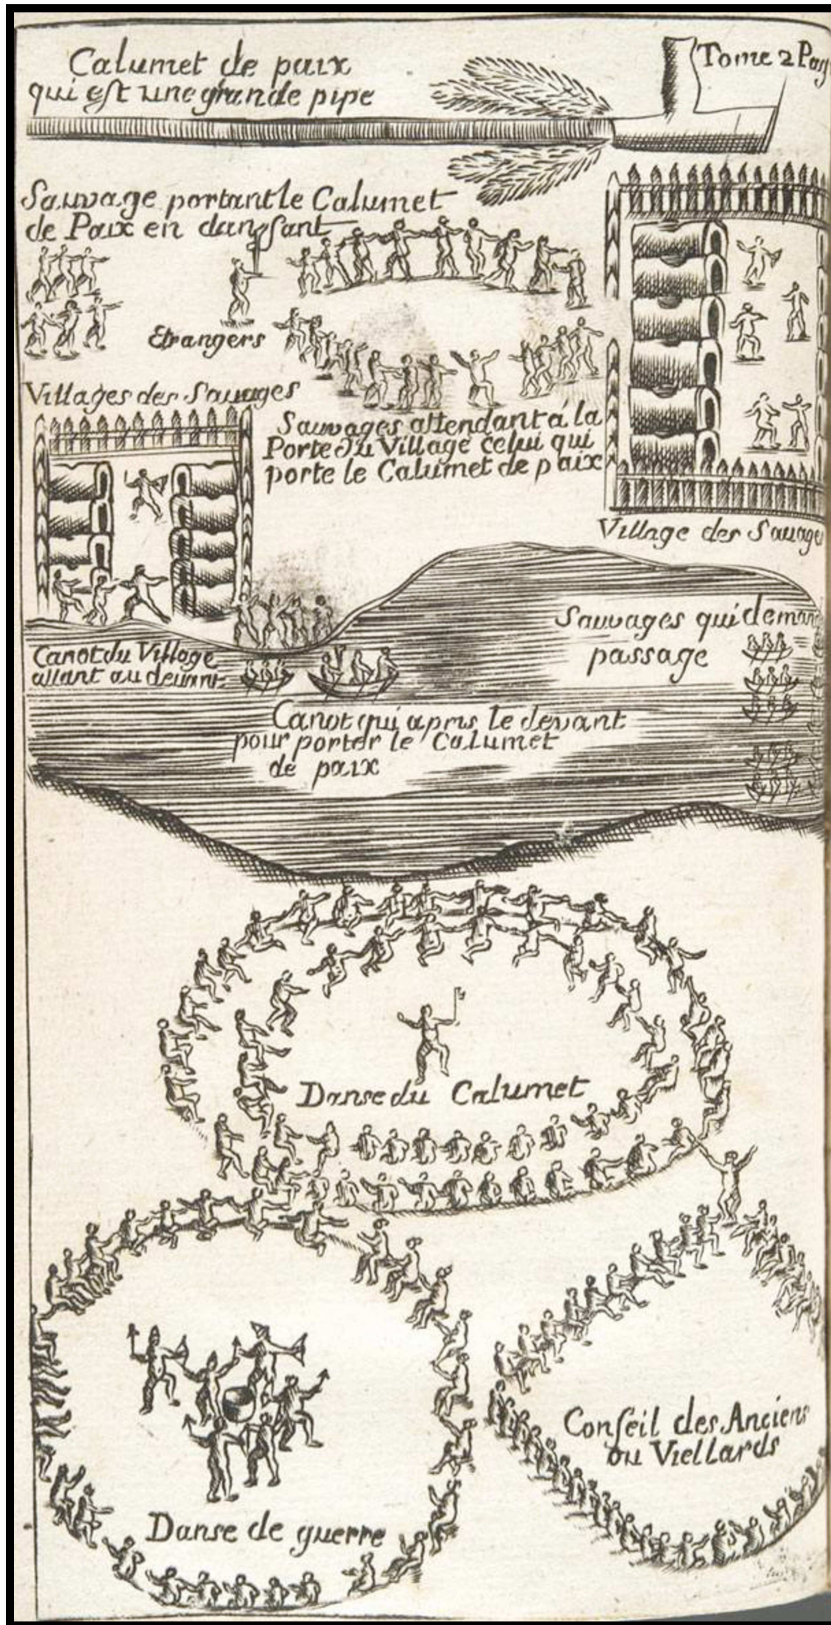 Calumet de paix
qui est une grande pipe
Tome 2 Pag
Sauvage portant le Calumet
de Paix en dansant
Etrangers
Villages des Sauvages
Sauvages attendant á la
Porte du Village celui qui
porte le Calumet de paix
Village des Sauvage
Sauvages qui deman
passage
Canot du Village
allant au devant
Canot qui apris le devant
pour porter le Calumet
de paix
Danse du Calumet
Conseil des Anciens
ou Viellards
Danse de guerre